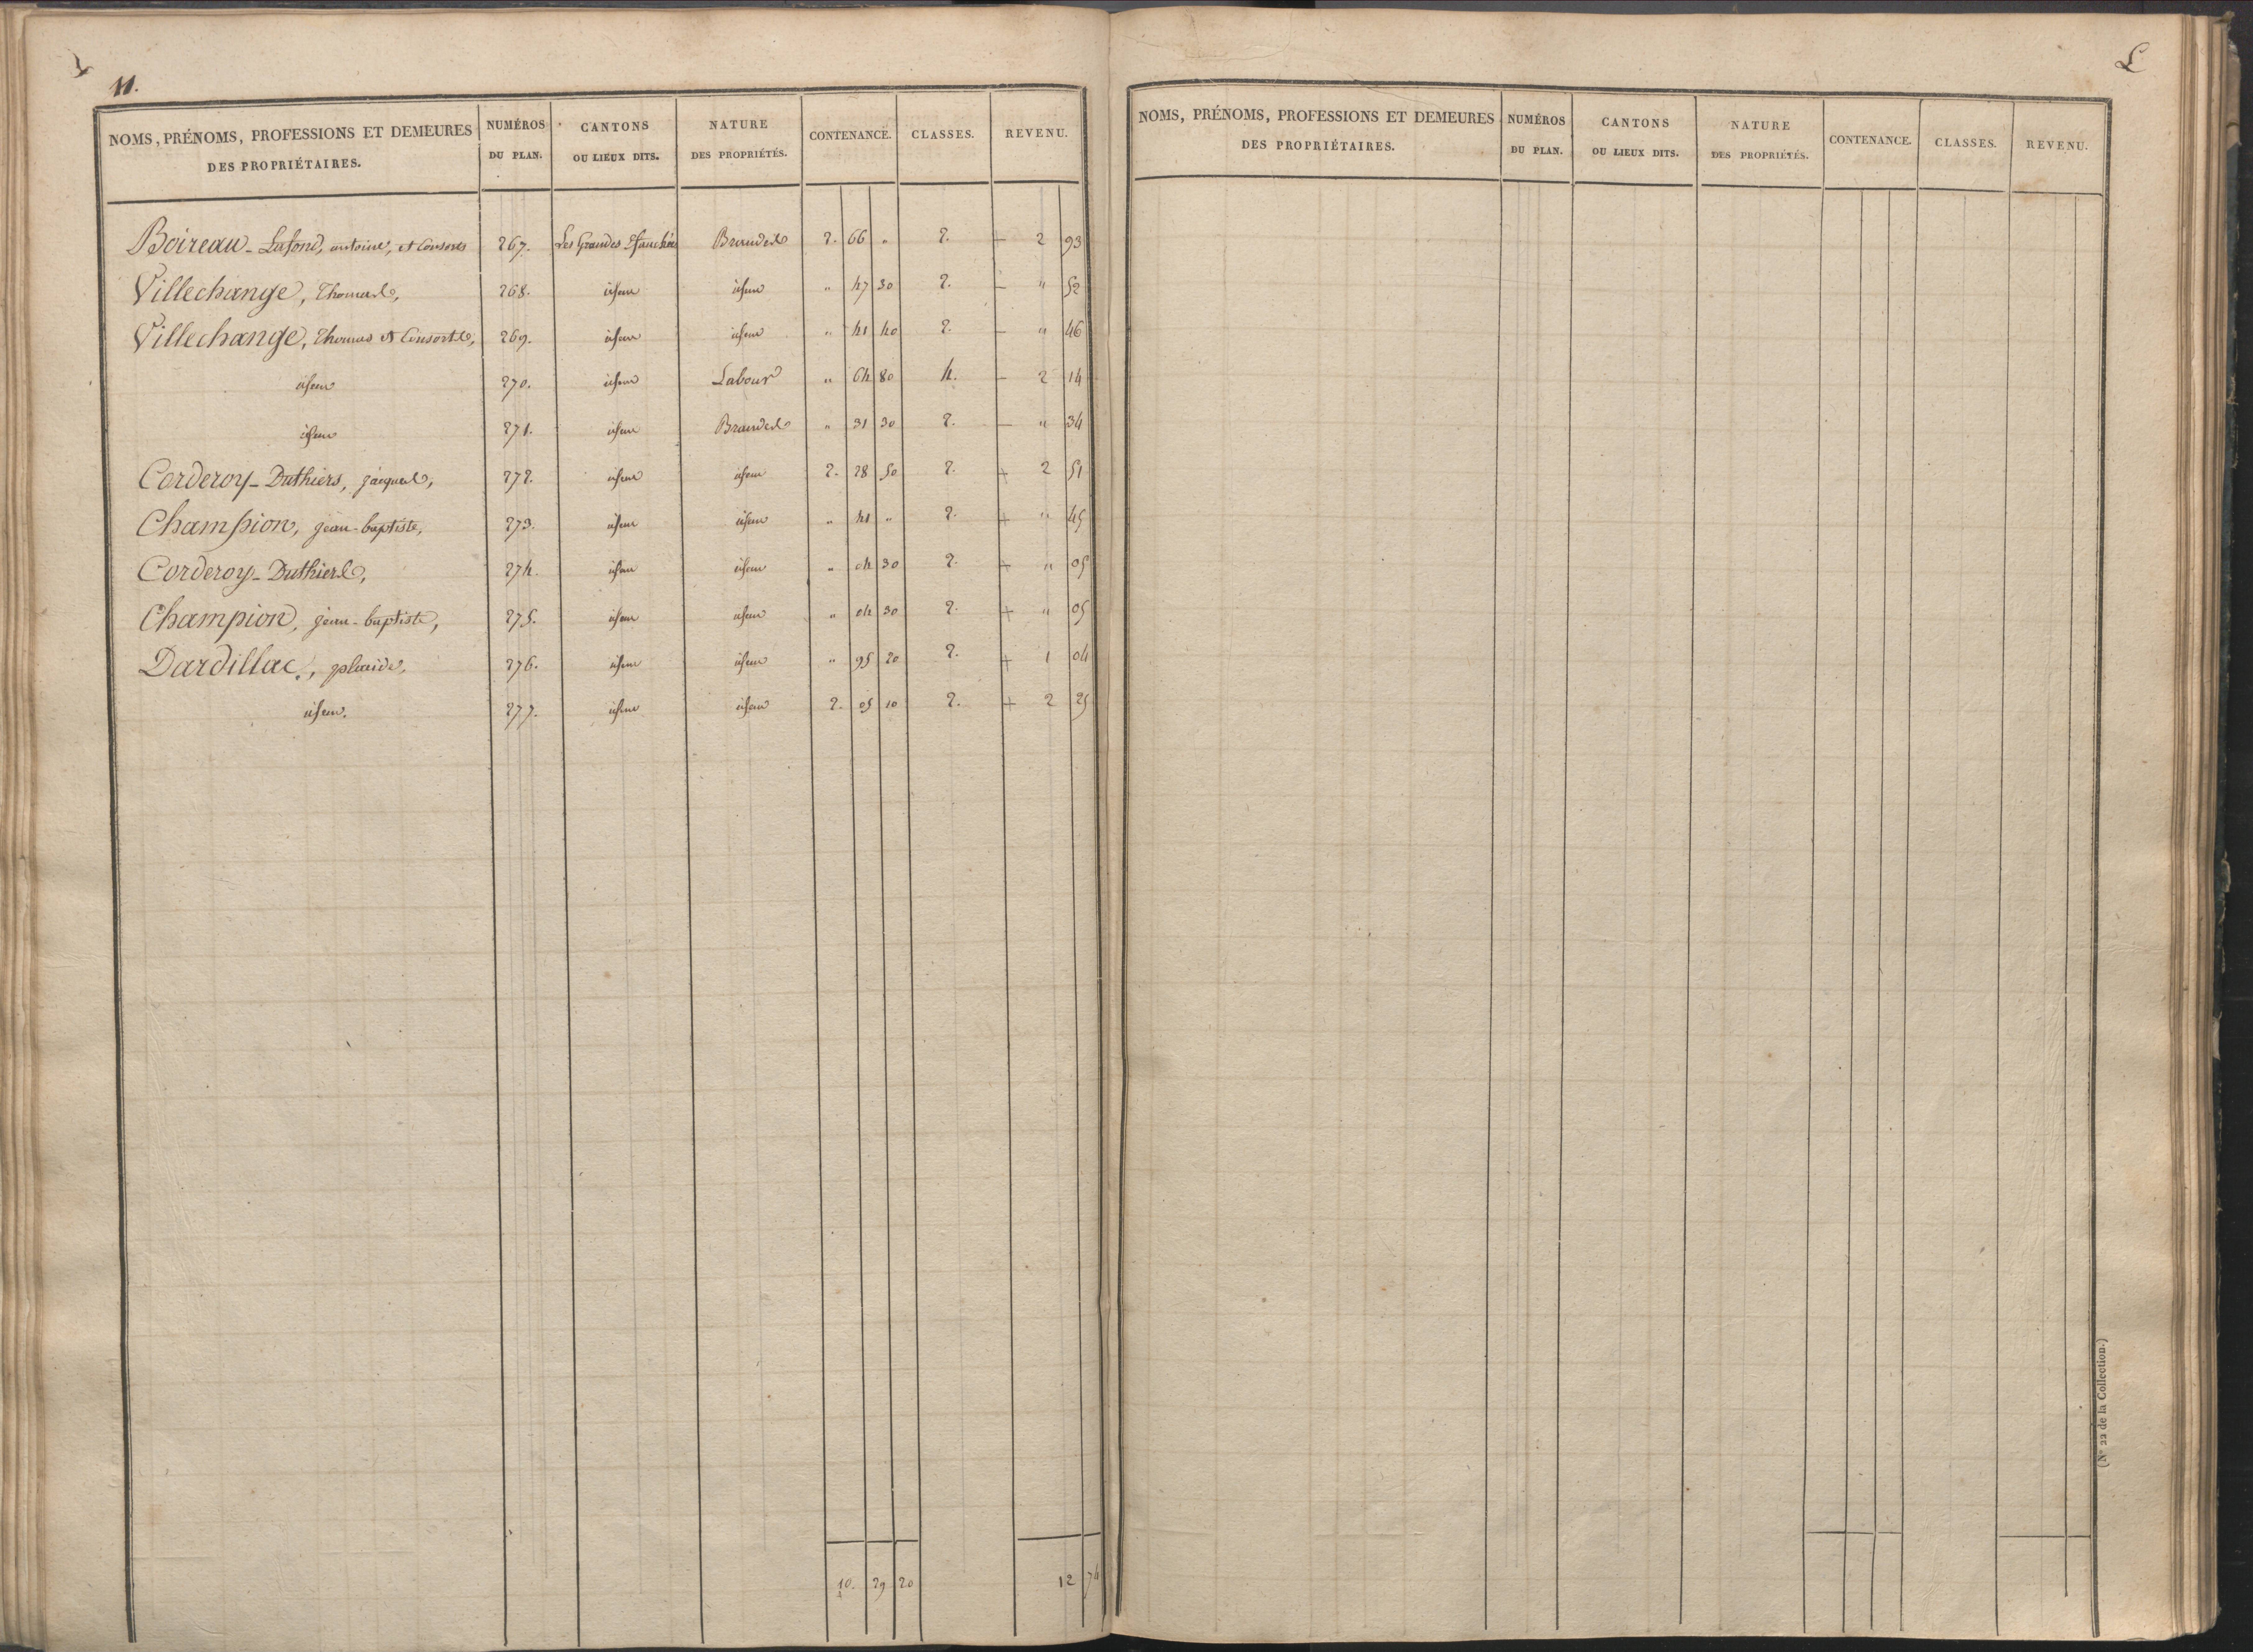 11.
NOMS, PRÉNOMS, PROFESSIONS ET DEMEURES DES PROPRIÉTAIRES. NUMÉROS DU PLAN. CANTONS OU LIEUX DITS. NATURE DES PROPRIÉTÉS. CONTENANCE. CLASSES. REVENU.
Boireau-Lafond, antoine, et Consorts 267. Les Grandes Brandes 2. 66 „ 2. - 2 93
Villechange, Thomas, 268. idem idem „ 47 30 2. - „ 52
Villechange, Thomas et Consorts, 269. idem idem „ 41 40 2. - „ 46
idem 270. idem Labour „ 64 80 4. - 2 14
idem 271. idem Brandes „ 31 30 2. - „ 34
Corderoy-Duthiers, jacques, 272. idem idem 2. 28 50 2. + 2 51
Champion, jean-baptiste, 273. idem idem „ 41 „ 2. + „ 45
Corderoy-Duthiers, 274. idem idem „ 04 30 2. + „ 05
Champion, jean-baptiste, 275. idem idem „ 04 30 2. + „ 05
Dardillac, placide. 276. idem idem „ 95 20 2. + 1 04
idem. 277. idem idem 2. 05 10 2. + 2 25
10. 29 20 12 74
L
NOMS, PRÉNOMS, PROFESSIONS ET DEMEURES DES PROPRIÉTAIRES. NUMÉROS DU PLAN. CANTONS OU LIEUX DITS. NATURE DES PROPRIÉTÉS. CONTENANCE. CLASSES. REVENU.
(N° 22 de la Collection.)